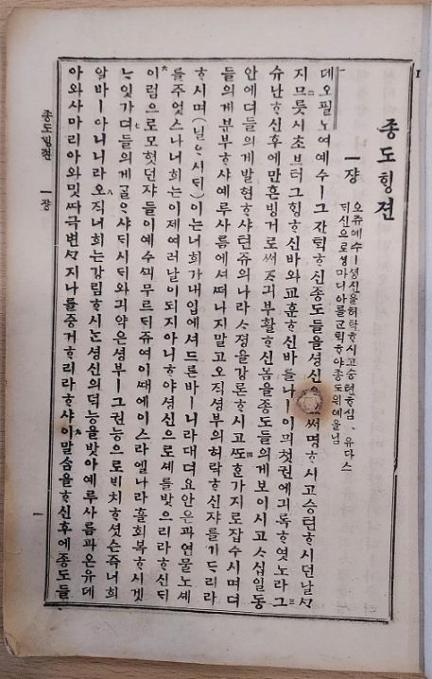 종도힝젼
一쟝
오쥬예수ㅣ셩신을허락ᄒᆞ시고승텬ᄒᆞ심、유다스
ᄃᆡ신으로셩마디아를ᄀᆞᆫ퇵ᄒᆞ야종도위예올님
데오필노여예수ㅣ그간퇵ᄒᆞ신종도들을셩신으로써명ᄒᆞ시고승텬ᄒᆞ시던날ᄭᆞ
지므릇시초브터그힝ᄒᆞ신바와교훈ᄒᆞ신바를나ㅣ이믜첫권에긔록ᄒᆞ엿노라그
슈난ᄒᆞ신후에만흔빙거로써ᄌᆞ긔부활ᄒᆞ신몸을종도들의게보이시고ᄉᆞ십일동
안에뎌들의게발현ᄒᆞ샤텬쥬의나라ᄉᆞ졍을강론ᄒᆞ시고ᄯᅩᄒᆞᆫ가지로잡수시며뎌
들의게분부ᄒᆞ샤예루사름에셔ᄯᅥ나지말고오직셩부의허락ᄒᆞ신쟈를기ᄃᆞ리라
ᄒᆞ시며(닐ᄋᆞ시ᄃᆡ)이는너희가내입에셔드른바ㅣ니라대뎌요안은과연물노셰
를주엇스나너희는이제여러날이되지아니ᄒᆞ야셩신으로셰를밧으리라ᄒᆞ신ᄃᆡ
이럼으로모혓던쟈들이예수ᄭᅴ무르ᄃᆡ쥬여이ᄯᅢ에이스라엘나라흘회복ᄒᆞ시겟
ᄂᆞ잇가뎌들의게ᄀᆞᆯᄋᆞ샤ᄃᆡ시ᄃᆡ와긔약은셩부ㅣ그권능으로비치ᄒᆞ셧슨즉너희
알바ㅣ아니니라오직너희는강림ᄒᆞ시ᄂᆞᆫ셩신의덕능을밧아예루사름과온유데
아와사마리아와밋ᄯᅡ극변ᄭᆞ지나를증거ᄒᆞ리라ᄒᆞ샤이말ᄉᆞᆷ을ᄒᆞ신후에종도들
종도힝젼 一쟝
一